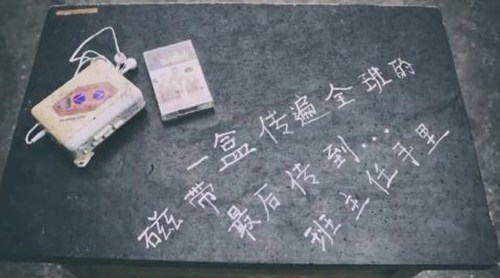 一盒传遍全班的
磁带
最后传到…
班主任手里